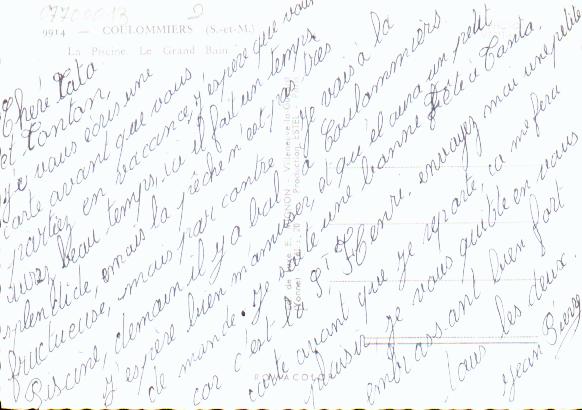 07700013
9914 — COULOMMIERS (S.-et-M.)
La Piscine. Le Grand Bain
Chère Tata
et Tonton,
Je vous écris une
carte avant que vous
partiez en vacance, j'espère que vous
aurez beau temps, ici il fait un temps
splendide, mais la pêche n'est pas très
fructueuse, mais par contre je vais à la
Piscine, demain il y a bal à Coulommiers
j'espère bien m'amuser, et qu'il aura un petit
de monde. Je souhaite une bonne fête à Tonton.
car c'est la St Henri. envoyez moi une petite
carte avant que je reparte, ça me fera
plaisir je vous quitte en vous
embrassant bien fort
tous les deux.
Jean Pierre